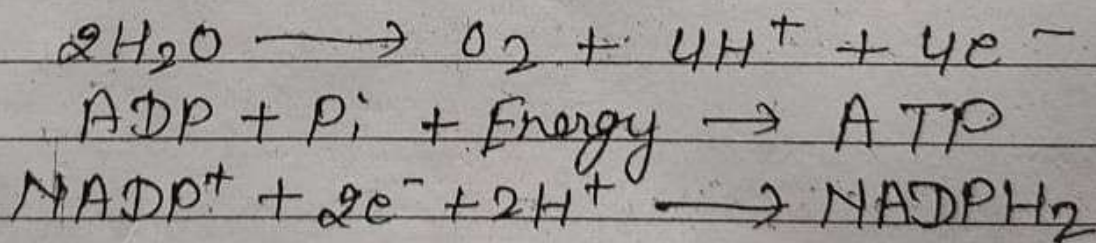 2H₂O ⟶ O₂ + 4H⁺ + 4e⁻
ADP + Pi + Energy → ATP
NADP⁺ + 2e⁻ + 2H⁺ ⟶ NADPH₂